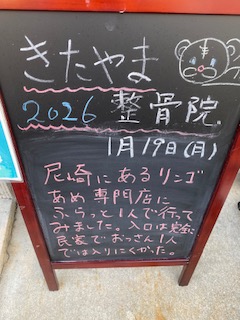 きたやま
2026 整骨院
1月19日(月)
尼崎にあるリンゴ
あめ専門店に
ふらっと1人で行って
みました。入口は完全に
民家でおっさん1人
では入りにくかった。